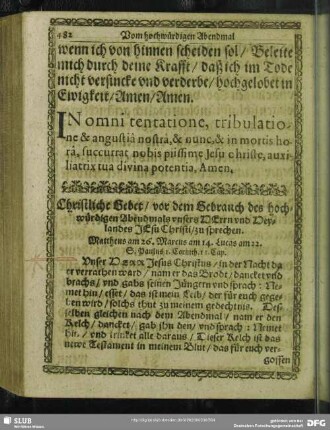 482 Vom hochwürdigen Abendmal
wenn ich von hinnen scheiden sol / Beleite
mich durch deine Krafft / daß ich im Tode
nicht versincke vnd verderbe / hochgelobet in
Ewigkeit / Amen / Amen.
IN omni tentatione, tribulatio-
ne & angustiâ nostrâ, & nunc, & in mortis ho-
râ, succurrat nobis piissime Jesu christe, auxi-
liatrix tua divina potentia, Amen.
Christliche Gebet / vor dem Gebrauch des hoch-
würdigen Abendmals vnsers HErrn vnd Hey-
landes JEsu Christi / zu sprechen.
Mattheus am 26. Marcus am 14. Lucas am 22.
S. Paulus 1. Corinth. 11. Cap.
Vnser HERR Jesus Christus / in der Nacht da
er verrathen ward / nam er das Brodt / dancket vnd
brachs / vnd gabs seinen Jüngern vnd sprach: Ne-
met hin / esset / das ist mein Leib / der für euch gege-
ben wird / solchs thut zu meinem gedechtnis. Des-
selben gleichen nach dem Abendmal / nam er den
Kelch / dancket / gab ihn den / vnd sprach: Nemet
hin / vnd trincket alle daraus / Dieser Kelch ist das
newe Testament in meinem Blut / das für euch ver-
gossen
SLUB
Wir führen Wissen.
gefördert von der
Deutschen Forschungsgemeinschaft
DFG